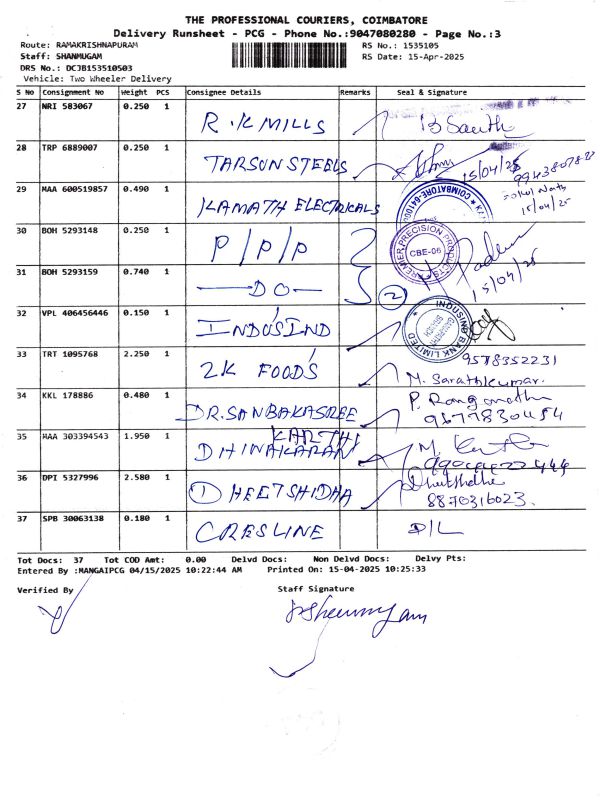 THE PROFESSIONAL COURIERS, COIMBATORE
Delivery Runsheet - PCG - Phone No.:9047080280 - Page No.:3
Route: RAMAKRISHNAPURAM RS No.: 1535105
Staff: SHANMUGAM RS Date: 15-Apr-2025
DRS No.: DCJB153510503
Vehicle: Two Wheeler Delivery
S No Consignment No Weight PCS Consignee Details Remarks Seal & Signature
27 NRI 583067 0.250 1 R.K MILLS
28 TRP 6889007 0.250 1 TARSUN STEELS 15/04/25
29 MAA 600519857 0.490 1 KAMATH ELECTRICALS COIMBATORE-641 15/04/25
30 BOH 5293148 0.250 1 P/P/P PREMIER PRECISION PRODUCTS CBE-06
31 BOH 5293159 0.740 1 —DO— 2 15/04/25
32 VPL 406456446 0.150 1 INDUSIND INDUSIND BANK LIMITED
33 TRT 1095768 2.250 1 2K FOODS 9578352231
M. Sarathkumar.
34 KKL 178886 0.480 1 DR.SANBAKASREE P. Ranganathan
35 MAA 303394543 1.950 1 KARTHI
DHINAKARAN M.
36 DPI 5327996 2.580 1 1 HEETSHIDHA
8870316023.
37 SPB 30063138 0.180 1 CRESLINE D/L
Tot Docs: 37 Tot COD Amt: 0.00 Delvd Docs: Non Delvd Docs: Delvy Pts:
Entered By :MANGAIPCG 04/15/2025 10:22:44 AM Printed On: 15-04-2025 10:25:33
Verified By Staff Signature